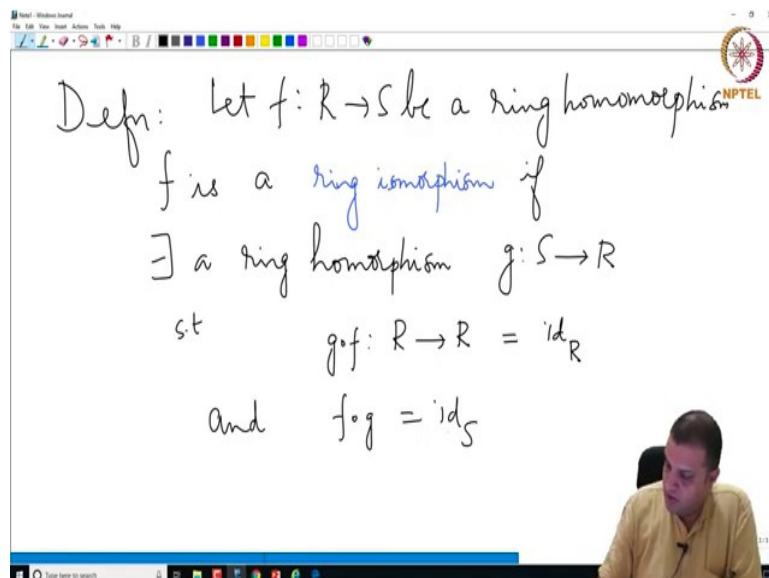 Note1 - Windows Journal
File Edit View Insert Actions Tools Help
NPTEL
Defn: Let f: R → S be a ring homomorphism
f is a ring isomorphism if
∃ a ring homorphism g: S → R
s.t g∘f: R → R = id_R
and f∘g = id_S
Type here to search